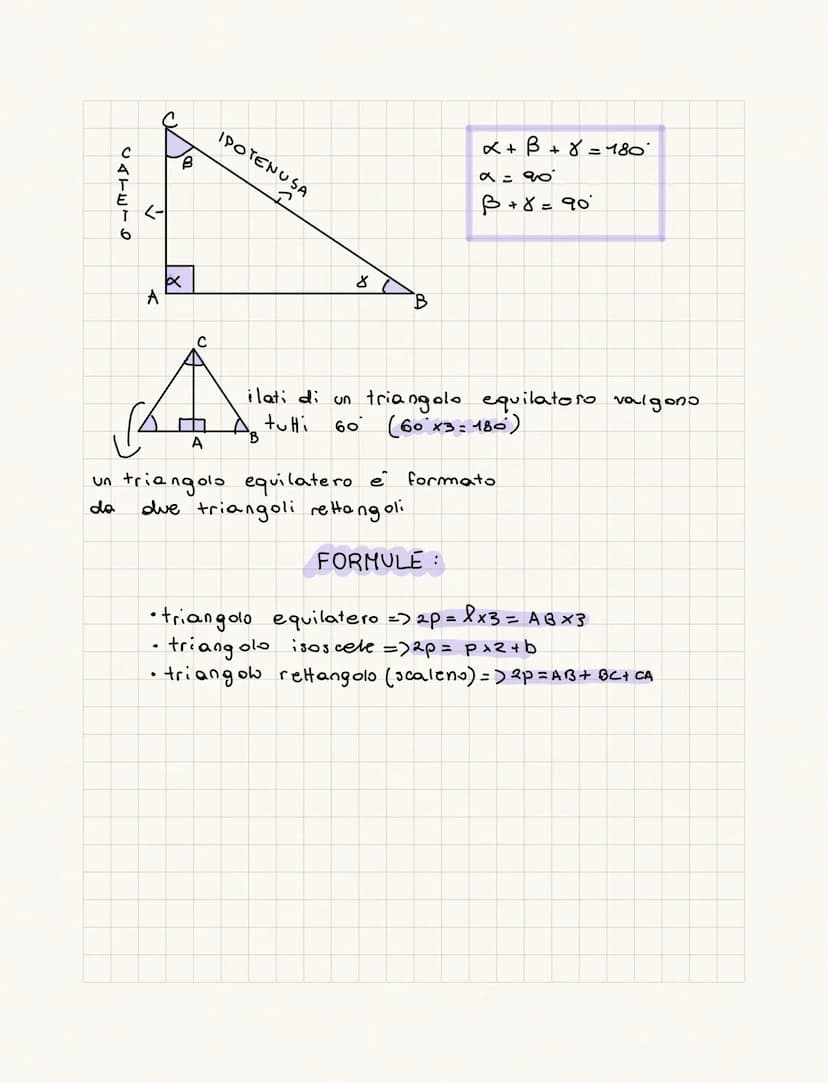 C
IPOTENUSA
CATETO
β
<-
α
A
γ
B
α + β + γ = 180°
α = 90°
β + γ = 90°
C
A
B
i lati di un triangolo equilatero valgono
tutti 60° (60° x3 = 180°)
un triangolo equilatero é formato
da due triangoli rettangoli
FORMULE :
• triangolo equilatero => 2p = l x3 = AB x3
• triangolo isoscele => 2p = p x2 + b
• triangolo rettangolo (scaleno) => 2p = AB + BC + CA